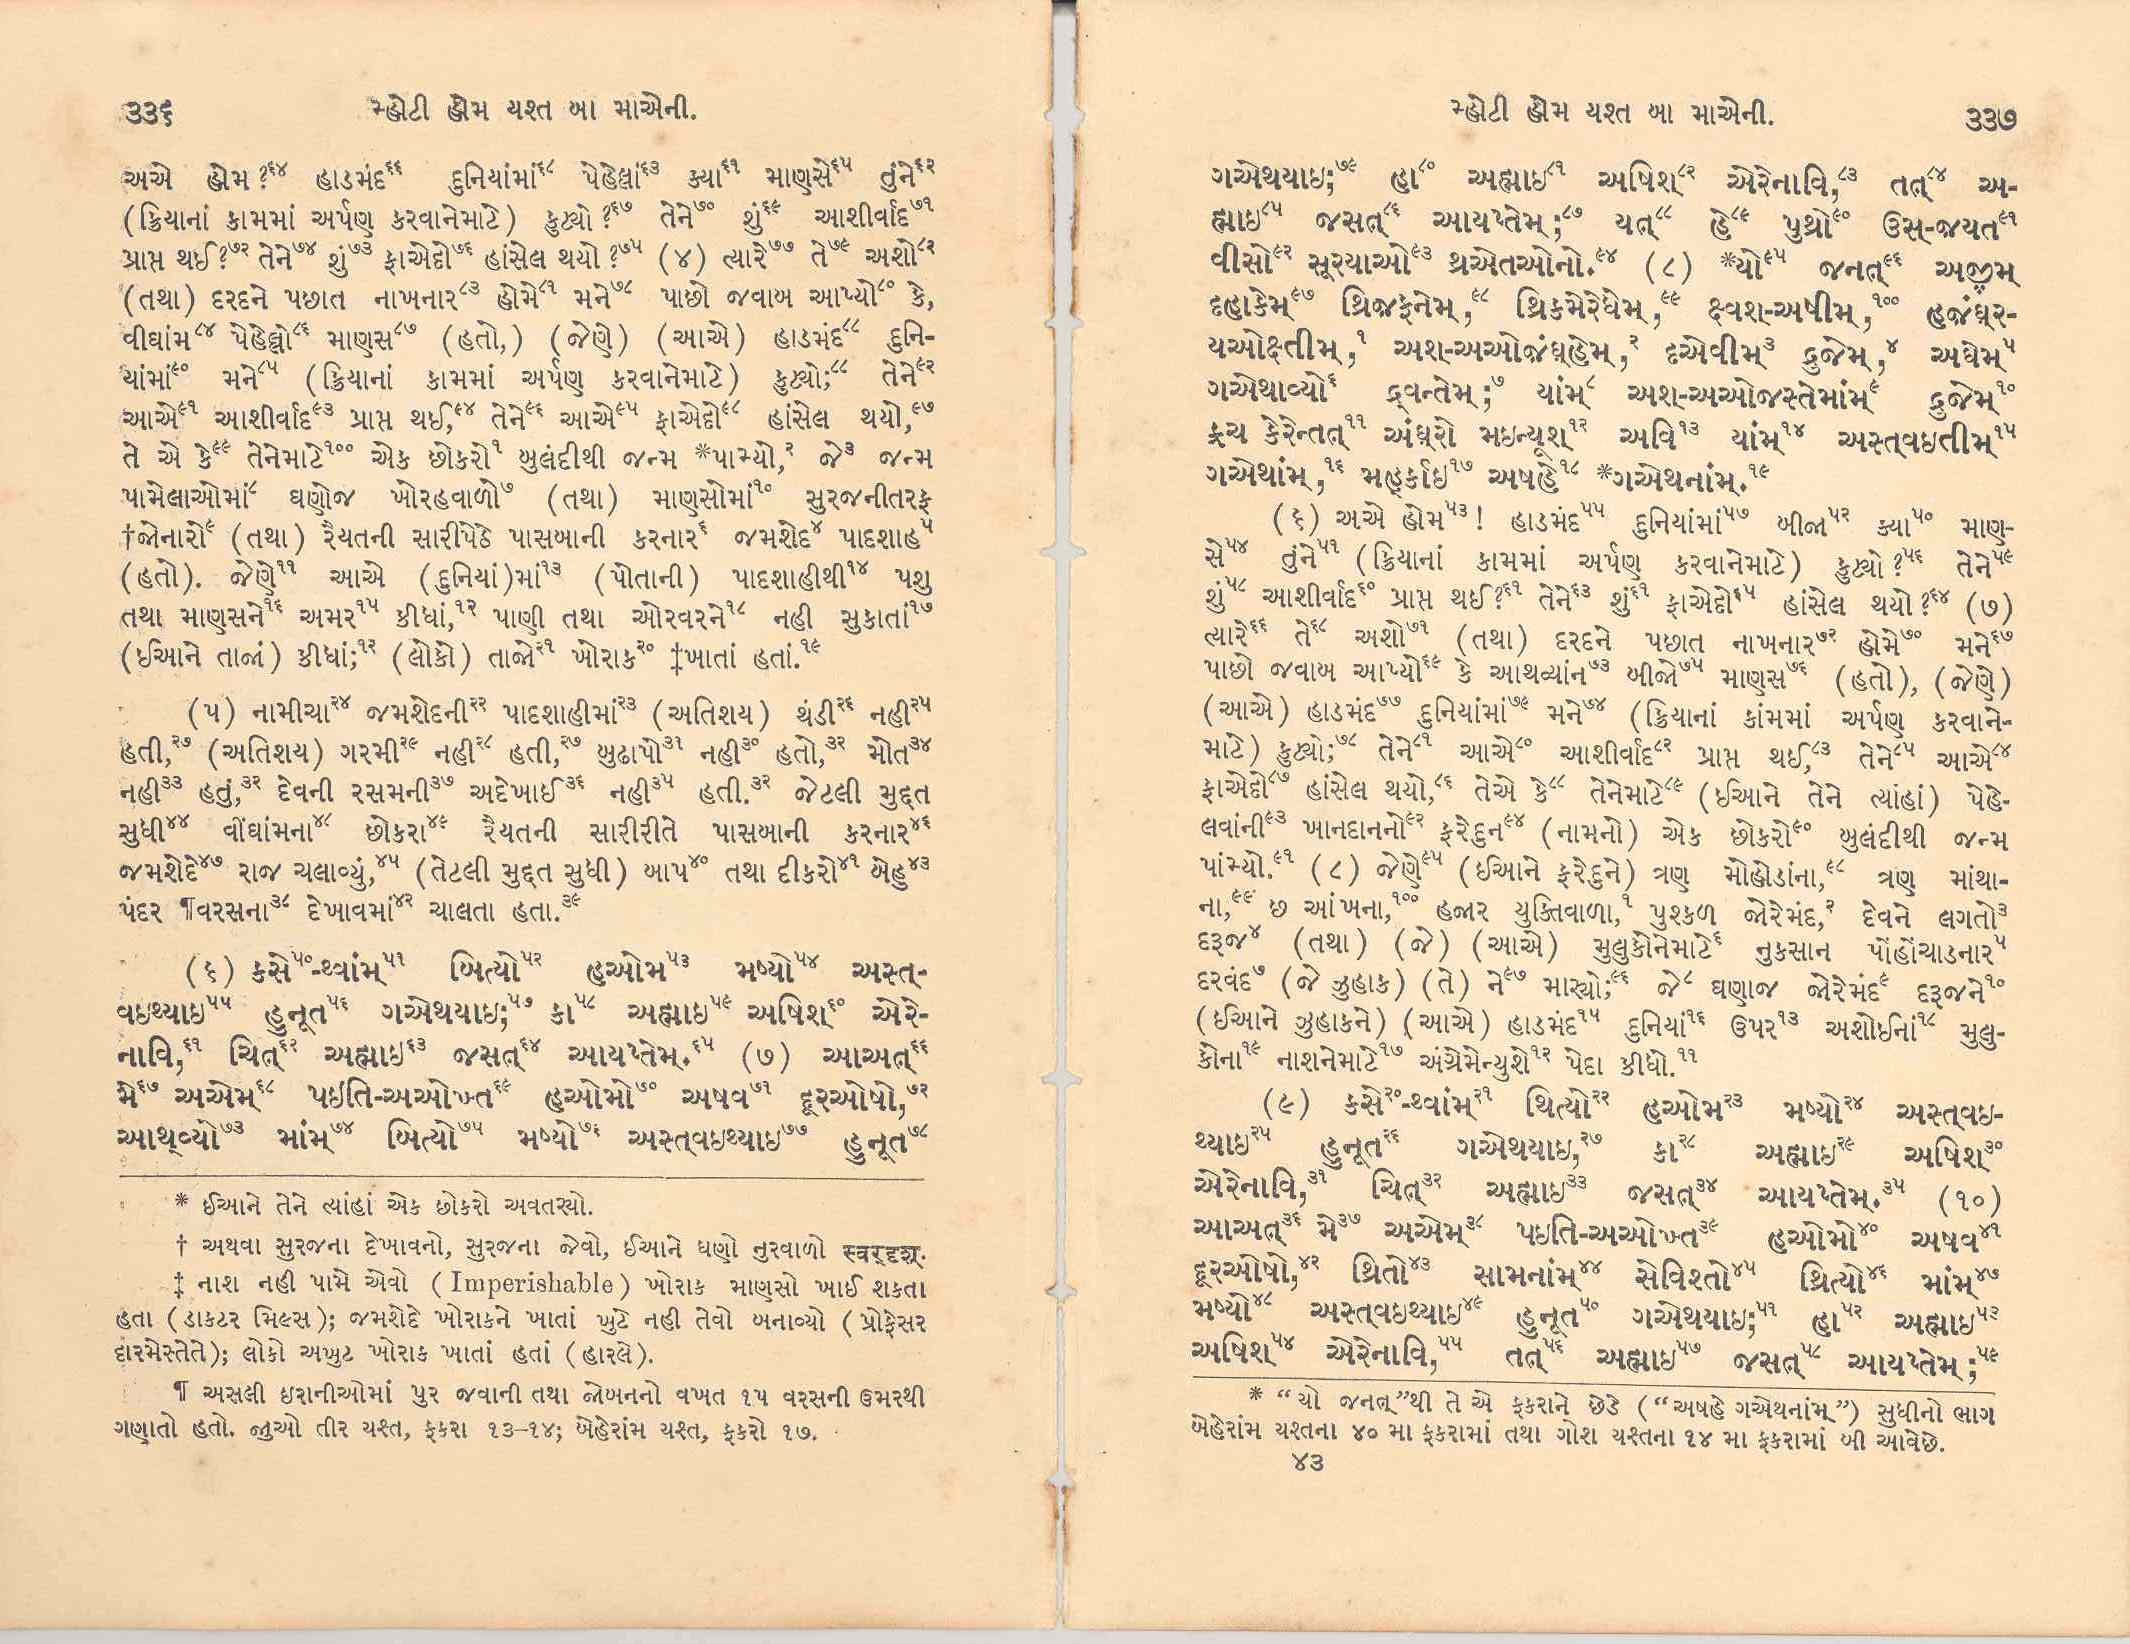 ૩૩૬ મ્હોટી હોમ યશ્ત બા માએની.
અએ હોમ?૬૪ હાડમંદ૬૬ દુનિયાંમાં૬૮ પેહેલાં૬૩ ક્યા૬૧ માણસે૬૫ તુંને૬૨
(ક્રિયાનાં કામમાં અર્પણ કરવાનેમાટે) કુટ્યો?૬૭ તેને૭૦ શું૬૯ આશીર્વાદ૭૧
પ્રાપ્ત થઈ?૭૨ તેને૭૪ શું૭૩ ફાએદો૭૬ હાંસેલ થયો?૭૫ (૪) ત્યારે૭૭ તે૭૯ અશો૮૨
(તથા) દરદને પછાત નાખનાર૮૩ હોમે૮૧ મને૭૮ પાછો જવાબ આપ્યો૮૦ કે,
વીઘાંમ૮૪ પેહેલ્લો૮૬ માણસ૮૭ (હતો,) (જેણે) (આએ) હાડમંદ૮૮ દુનિ-
યાંમાં૯૦ મને૮૫ (ક્રિયાનાં કામમાં અર્પણ કરવાનેમાટે) કુટ્યો;૮૮ તેને૯૨
આએ૯૧ આશીર્વાદ૯૩ પ્રાપ્ત થઈ,૯૪ તેને૯૬ આએ૯૫ ફાએદો૯૮ હાંસેલ થયો,૯૭
તે એ કે૯૯ તેનેમાટે૧૦૦ એક છોકરો૧ બુલંદીથી જન્મ *પામ્યો,૨ જે૩ જન્મ
પામેલાઓમાં૮ ઘણોજ ખોરહવાળો૭ (તથા) માણસોમાં૧૦ સુરજનીતરફ
†જોનારો૯ (તથા) રૈયતની સારીપેઠે પાસબાની કરનાર૬ જમશેદ૪ પાદશાહ૫
(હતો). જેણે૧૧ આએ (દુનિયાં)માં૧૩ (પોતાની) પાદશાહીથી૧૪ પશુ
તથા માણસને૧૬ અમર૧૫ કીધાં,૧૨ પાણી તથા ઓરવરને૧૮ નહી સુકાતાં૧૭
(ઈઆને તાજાં) કીધાં;૧૨ (લોકો) તાજો૨૧ ખોરાક૨૦ ‡ખાતાં હતાં.૧૯
(૫) નામીચા૨૪ જમશેદની૨૨ પાદશાહીમાં૨૩ (અતિશય) થંડી૨૬ નહી૨૫
હતી,૨૭ (અતિશય) ગરમી૨૯ નહી૨૮ હતી,૨૭ બુઢાપો૩૧ નહી૩૦ હતો,૩૨ મોત૩૪
નહી૩૩ હતું,૩૨ દેવની રસમની૩૭ અદેખાઈ૩૬ નહી૩૫ હતી.૩૨ જેટલી મુદ્દત
સુધી૪૪ વીંઘાંમના૪૮ છોકરા૪૯ રૈયતની સારીરીતે પાસબાની કરનાર૪૬
જમશેદે૪૭ રાજ ચલાવ્યું,૪૫ (તેટલી મુદ્દત સુધી) બાપ૪૦ તથા દીકરો૪૧ બેહુ૪૩
પંદર ¶વરસના૩૮ દેખાવમાં૪૨ ચાલતા હતા.૩૯
(૬) કસે૫૦-થ્વાંમ્૫૧ બિત્યો૫૨ હઓમ૫૩ મષ્યો૫૪ અસ્ત્-
વઇથ્યાઇ૫૫ હુનૂત૫૬ ગએથયાઇ;૫૭ કા૫૮ અહ્માઇ૫૯ અષિશ્૬૦ એરે-
નાવિ,૬૧ ચિત્૬૨ અહ્માઇ૬૩ જસત્૬૪ આયપ્તેમ્.૬૫ (૭) આઅત્૬૬
મે૬૭ અએમ્૬૮ પઇતિ-અઓખ્ત૬૯ હઓમો૭૦ અષવ૭૧ દૂરઓષો,૭૨
આથ્વ્યો૭૩ માંમ્૭૪ બિત્યો૭૫ મષ્યો૭૬ અસ્ત્વઇથ્યાઇ૭૭ હુનૂત૭૮
* ઈઆને તેને ત્યાંહાં એક છોકરો અવતર્યો.
† અથવા સુરજના દેખાવનો, સુરજના જેવો, ઈઆને ઘણો નુરવાળો स्वर्दृश्.
‡ નાશ નહી પામે એવો (Imperishable) ખોરાક માણસો ખાઈ શકતા
હતા (ડાકટર મિલ્સ); જમશેદે ખોરાકને ખાતાં ખુટે નહી તેવો બનાવ્યો (પ્રોફેસર
દારમેસ્તેતે); લોકો અખુટ ખોરાક ખાતાં હતાં (હારલે).
¶ અસલી ઇરાનીઓમાં પુર જવાની તથા જોબનનો વખત ૧૫ વરસની ઉમરથી
ગણાતો હતો. જુઓ તીર યશ્ત, ફકરા ૧૩–૧૪; બેહેરાંમ યશ્ત, ફકરો ૧૭.
મ્હોટી હોમ યશ્ત બા માએની. ૩૩૭
ગએથયાઇ;૭૯ હા૮૦ અહ્માઇ૮૧ અષિશ્૮૨ એરેનાવિ,૮૩ તત્૮૪ અ-
હ્માઇ૮૫ જસત્૮૬ આયપ્તેમ્;૮૭ યત્૮૮ હે૮૯ પુથ્રો૯૦ ઉસ્-જયત૯૧
વીસો૯૨ સૂરયાઓ૯૩ થ્રએતઓનો.૯૪ (૮) *યો૯૫ જનત્૯૬ અજીમ્
દહાકેમ્૯૭ થ્રિજફનેમ્,૯૮ થ્રિકમેરેધેમ્,૯૯ ક્ષ્વશ્-અષીમ્,૧૦૦ હજંઘ્ર-
યઓક્ષ્તીમ્,૧ અશ-અઓજંઘ્હેમ્,૨ દએવીમ્૩ દ્રુજેમ્,૪ અઘેમ્૫
ગએથાવ્યો૬ દ્રવન્તેમ્;૭ યાંમ્૮ અશ-અઓજસ્તેમાંમ્૯ દ્રુજેમ્૧૦
ફ્રચ કેરેન્તત્૧૧ અંઘ્રો મઇન્યૂશ્૧૨ અવિ૧૩ યાંમ્૧૪ અસ્ત્વઇતીમ્૧૫
ગએથાંમ્,૧૬ મહ્ર્કાઇ૧૭ અષહે૧૮ *ગએથનાંમ્.૧૯
(૬) અએ હોમ૫૩! હાડમંદ૫૫ દુનિયાંમાં૫૭ બીજા૫૨ ક્યા૫૦ માણ-
સે૫૪ તુંને૫૧ (ક્રિયાનાં કામમાં અર્પણ કરવાનેમાટે) કુટ્યો?૫૬ તેને૫૯
શું૫૮ આશીર્વાદ૬૦ પ્રાપ્ત થઈ?૬૧ તેને૬૩ શું૬૧ ફાએદો૬૫ હાંસેલ થયો?૬૪ (૭)
ત્યારે૬૬ તે૬૮ અશો૭૧ (તથા) દરદને પછાત નાખનાર૭૨ હોમે૭૦ મને૬૭
પાછો જવાબ આપ્યો૬૯ કે આથવ્યાંન૭૩ બીજો૭૫ માણસ૭૬ (હતો), (જેણે)
(આએ) હાડમંદ૭૭ દુનિયાંમાં૭૯ મને૭૪ (ક્રિયાનાં કાંમમાં અર્પણ કરવાને-
માટે) કુટ્યો;૭૮ તેને૮૧ આએ૮૦ આશીર્વાદ૮૨ પ્રાપ્ત થઈ,૮૩ તેને૮૫ આએ૮૪
ફાએદો૮૭ હાંસેલ થયો,૮૬ તેએ કે૮૮ તેનેમાટે૮૯ (ઈઆને તેને ત્યાંહાં) પેહે-
લવાંની૯૩ ખાનદાનનો૯૨ ફરેદુન૯૪ (નામનો) એક છોકરો૯૦ બુલંદીથી જન્મ
પાંમ્યો.૯૧ (૮) જેણે૯૫ (ઈઆને ફરેદુને) ત્રણ મોહોડાંના,૯૮ ત્રણ માંથા-
ના,૯૯ છ આંખના,૧૦૦ હજાર યુક્તિવાળા,૧ પુશ્કળ જોરેમંદ,૨ દેવને લગતો૩
દરૂજ૪ (તથા) (જે) (આએ) મુલુકોનેમાટે૬ નુકસાન પોંહોંચાડનાર૫
દરવંદ૭ (જે ઝુહાક) (તે) ને૯૭ માર્યો;૯૬ જે૮ ઘણાજ જોરેમંદ૯ દરૂજને૧૦
(ઈઆને ઝુહાકને) (આએ) હાડમંદ૧૫ દુનિયાં૧૬ ઉપર૧૩ અશોઈનાં૧૮ મુલુ-
કોના૧૯ નાશનેમાટે૧૭ અંગ્રેમેન્યુશે૧૨ પેદા કીધો.૧૧
(૯) કસે૨૦-થ્વાંમ્૨૧ થિત્યો૨૨ હઓમ૨૩ મષ્યો૨૪ અસ્ત્વઇ-
થ્યાઇ૨૫ હુનૂત૨૬ ગએથયાઇ,૨૭ કા૨૮ અહ્માઇ૨૯ અષિશ્૩૦
એરેનાવિ,૩૧ ચિત્૩૨ અહ્માઇ૩૩ જસત્૩૪ આયપ્તેમ્.૩૫ (૧૦)
આઅત્૩૬ મે૩૭ અએમ્૩૮ પઇતિ-અઓખ્ત૩૯ હઓમો૪૦ અષવ૪૧
દૂરઓષો,૪૨ થ્રિતો૪૩ સામનાંમ્૪૪ સેવિશ્તો૪૫ થ્રિત્યો૪૬ માંમ્૪૭
મષ્યો૪૮ અસ્ત્વઇથ્યાઇ૪૯ હુનૂત૫૦ ગએથયાઇ;૫૧ હા૫૨ અહ્માઇ૫૩
અષિશ્૫૪ એરેનાવિ,૫૫ તત્૫૬ અહ્માઇ૫૭ જસત્૫૮ આયપ્તેમ્;૫૯
* “યો જનત્”થી તે એ ફકરાને છેડે (“અષહે ગએથનાંમ્”) સુધીનો ભાગ
બેહેરાંમ યશ્તના ૪૦ મા ફકરામાં તથા ગોશ યશ્તના ૧૪ મા ફકરામાં બી આવેછે.
૪૩